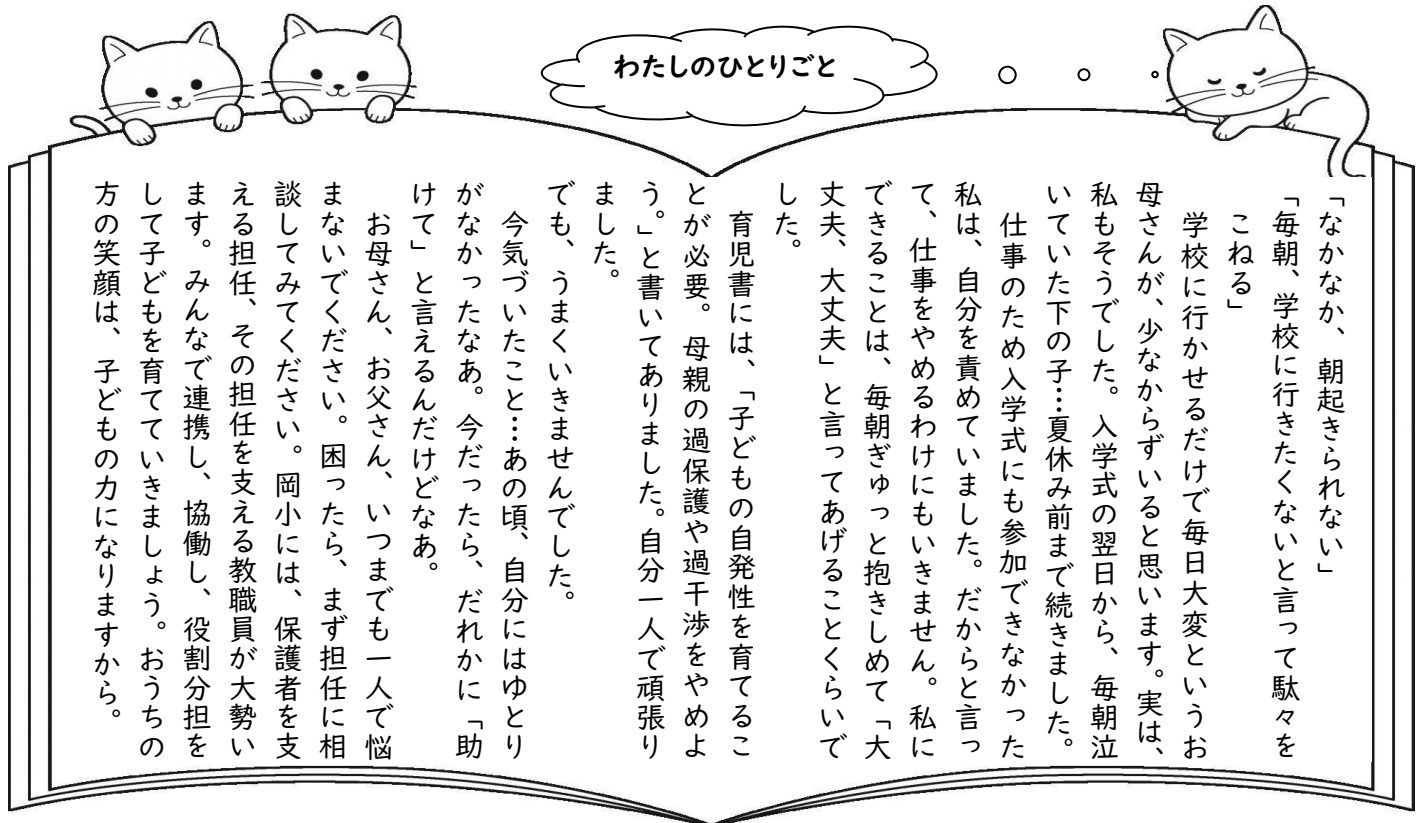 わたしのひとりごと
「なかなか、朝起きられない」
「毎朝、学校に行きたくないと言って駄々を
こねる」
学校に行かせるだけで毎日大変というお
母さんが、少なからずいると思います。実は、
私もそうでした。入学式の翌日から、毎朝泣
いていた下の子…夏休み前まで続きました。
仕事のため入学式にも参加できなかった
私は、自分を責めていました。だからと言っ
て、仕事をやめるわけにもいきません。私に
できることは、毎朝ぎゅっと抱きしめて「大
丈夫、大丈夫」と言ってあげることくらいで
した。
育児書には、「子どもの自発性を育てるこ
とが必要。母親の過保護や過干渉をやめよ
う。」と書いてありました。自分一人で頑張り
ました。
でも、うまくいきませんでした。
今気づいたこと…あの頃、自分にはゆとり
がなかったなあ。今だったら、だれかに「助
けて」と言えるんだけどなあ。
お母さん、お父さん、いつまでも一人で悩
まないでください。困ったら、まず担任に相
談してみてください。岡小には、保護者を支
える担任、その担任を支える教職員が大勢い
ます。みんなで連携し、協働し、役割分担を
して子どもを育てていきましょう。おうちの
方の笑顔は、子どもの力になりますから。